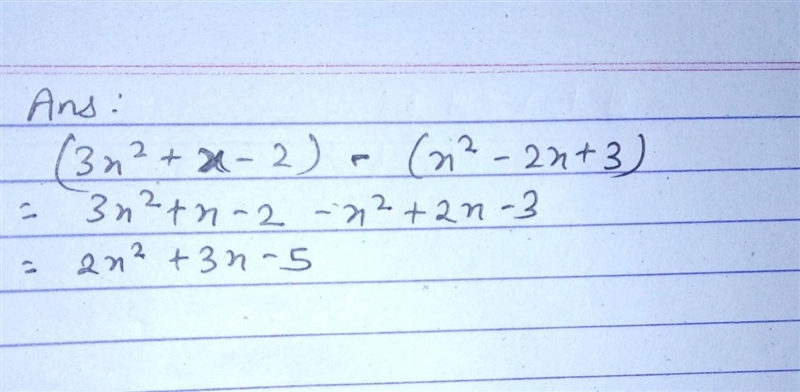 Ans:
(3x² + x - 2) - (x² - 2x + 3)
= 3x² + x - 2 - x² + 2x - 3
= 2x² + 3x - 5